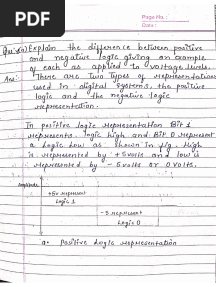 PDF
Page No.:
Date:
Que. Explain the difference between positive
and negative logic giving an example
of each as applied to voltage levels.
Ans: There are two types of representation
used in digital systems, the positive
logic and the negative logic
representation.
In positive logic representation Bit 1
represents logic high and Bit 0 represent
a logic low as shown in fig. High
is represented by +5volts and low is
represented by - 5volts or 0 Volts.
Amplitude
+5v represent
Logic 1
represent
Logic 0
a. Positive Logic representation